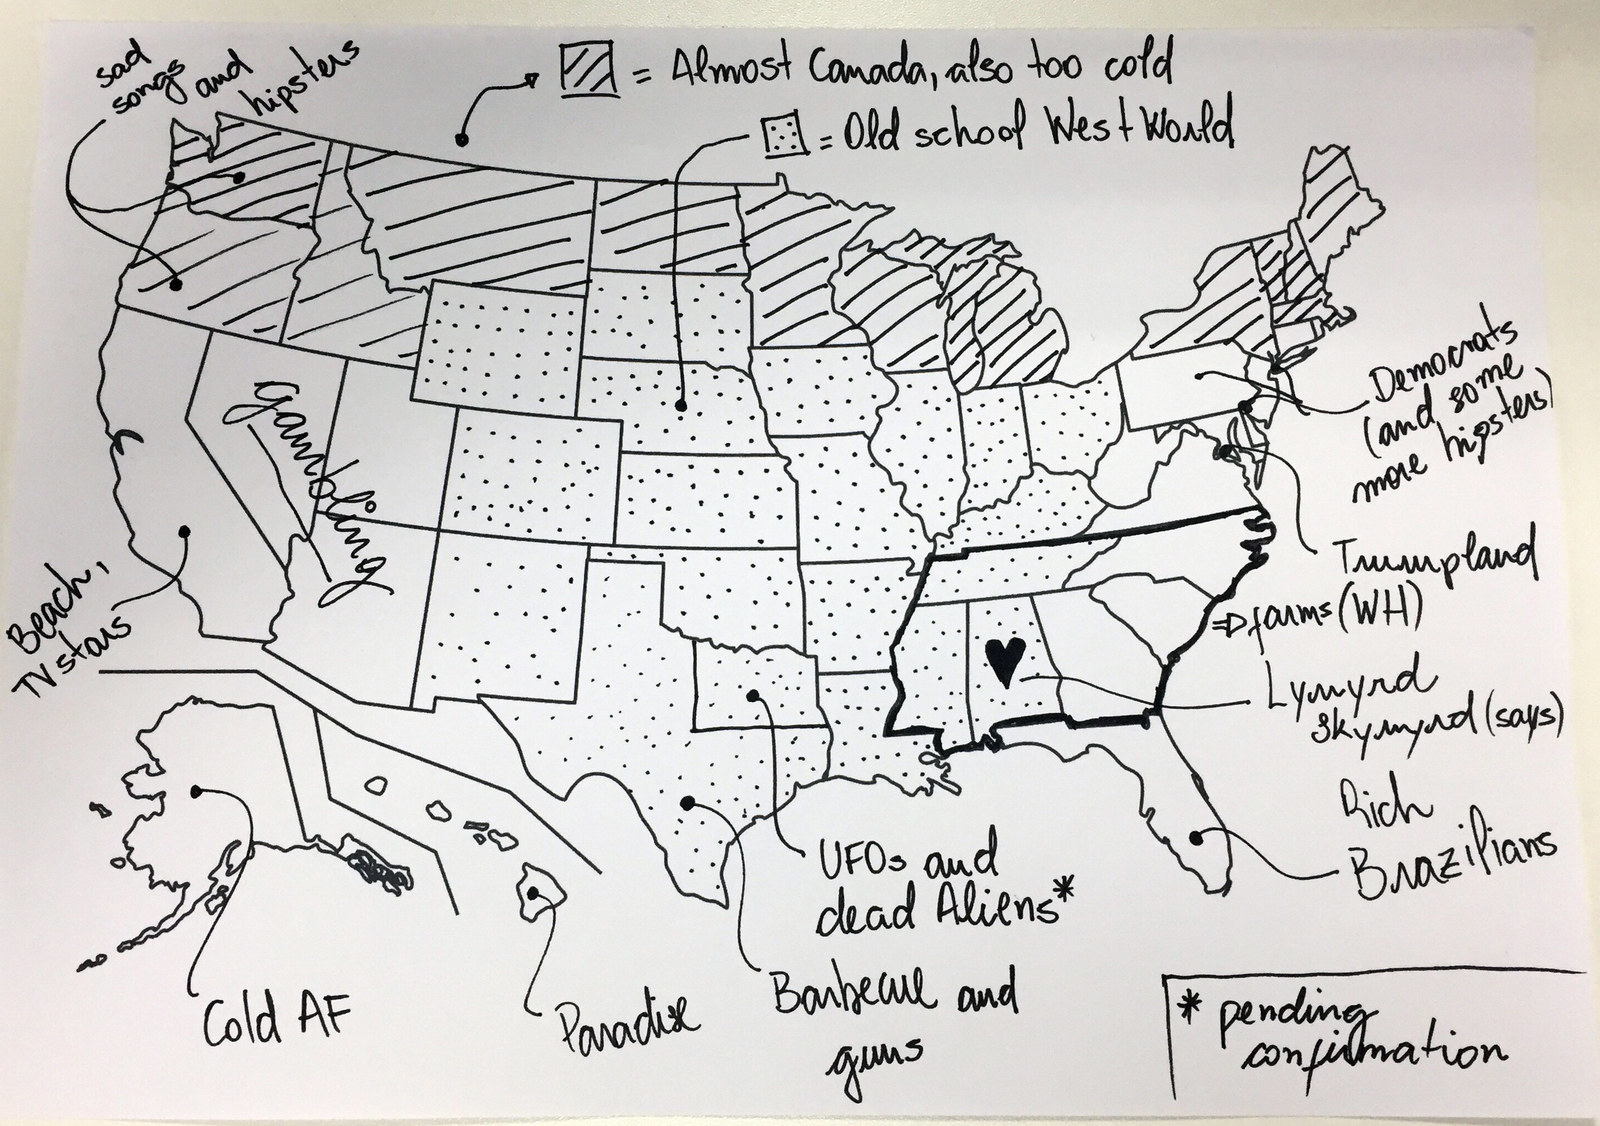 sad
songs and
hipsters
= Almost Canada, also too cold
= Old school West World
gambling
Democrats
(and some
more hipsters)
Beach,
TV stars
Trumpland
(WH)
⇒ farms
Lynyrd
Skynyrd (says)
Rich
Brazilians
UFOs and
dead Aliens*
Barbecue and
guns
Cold AF
Paradise
* pending
confirmation